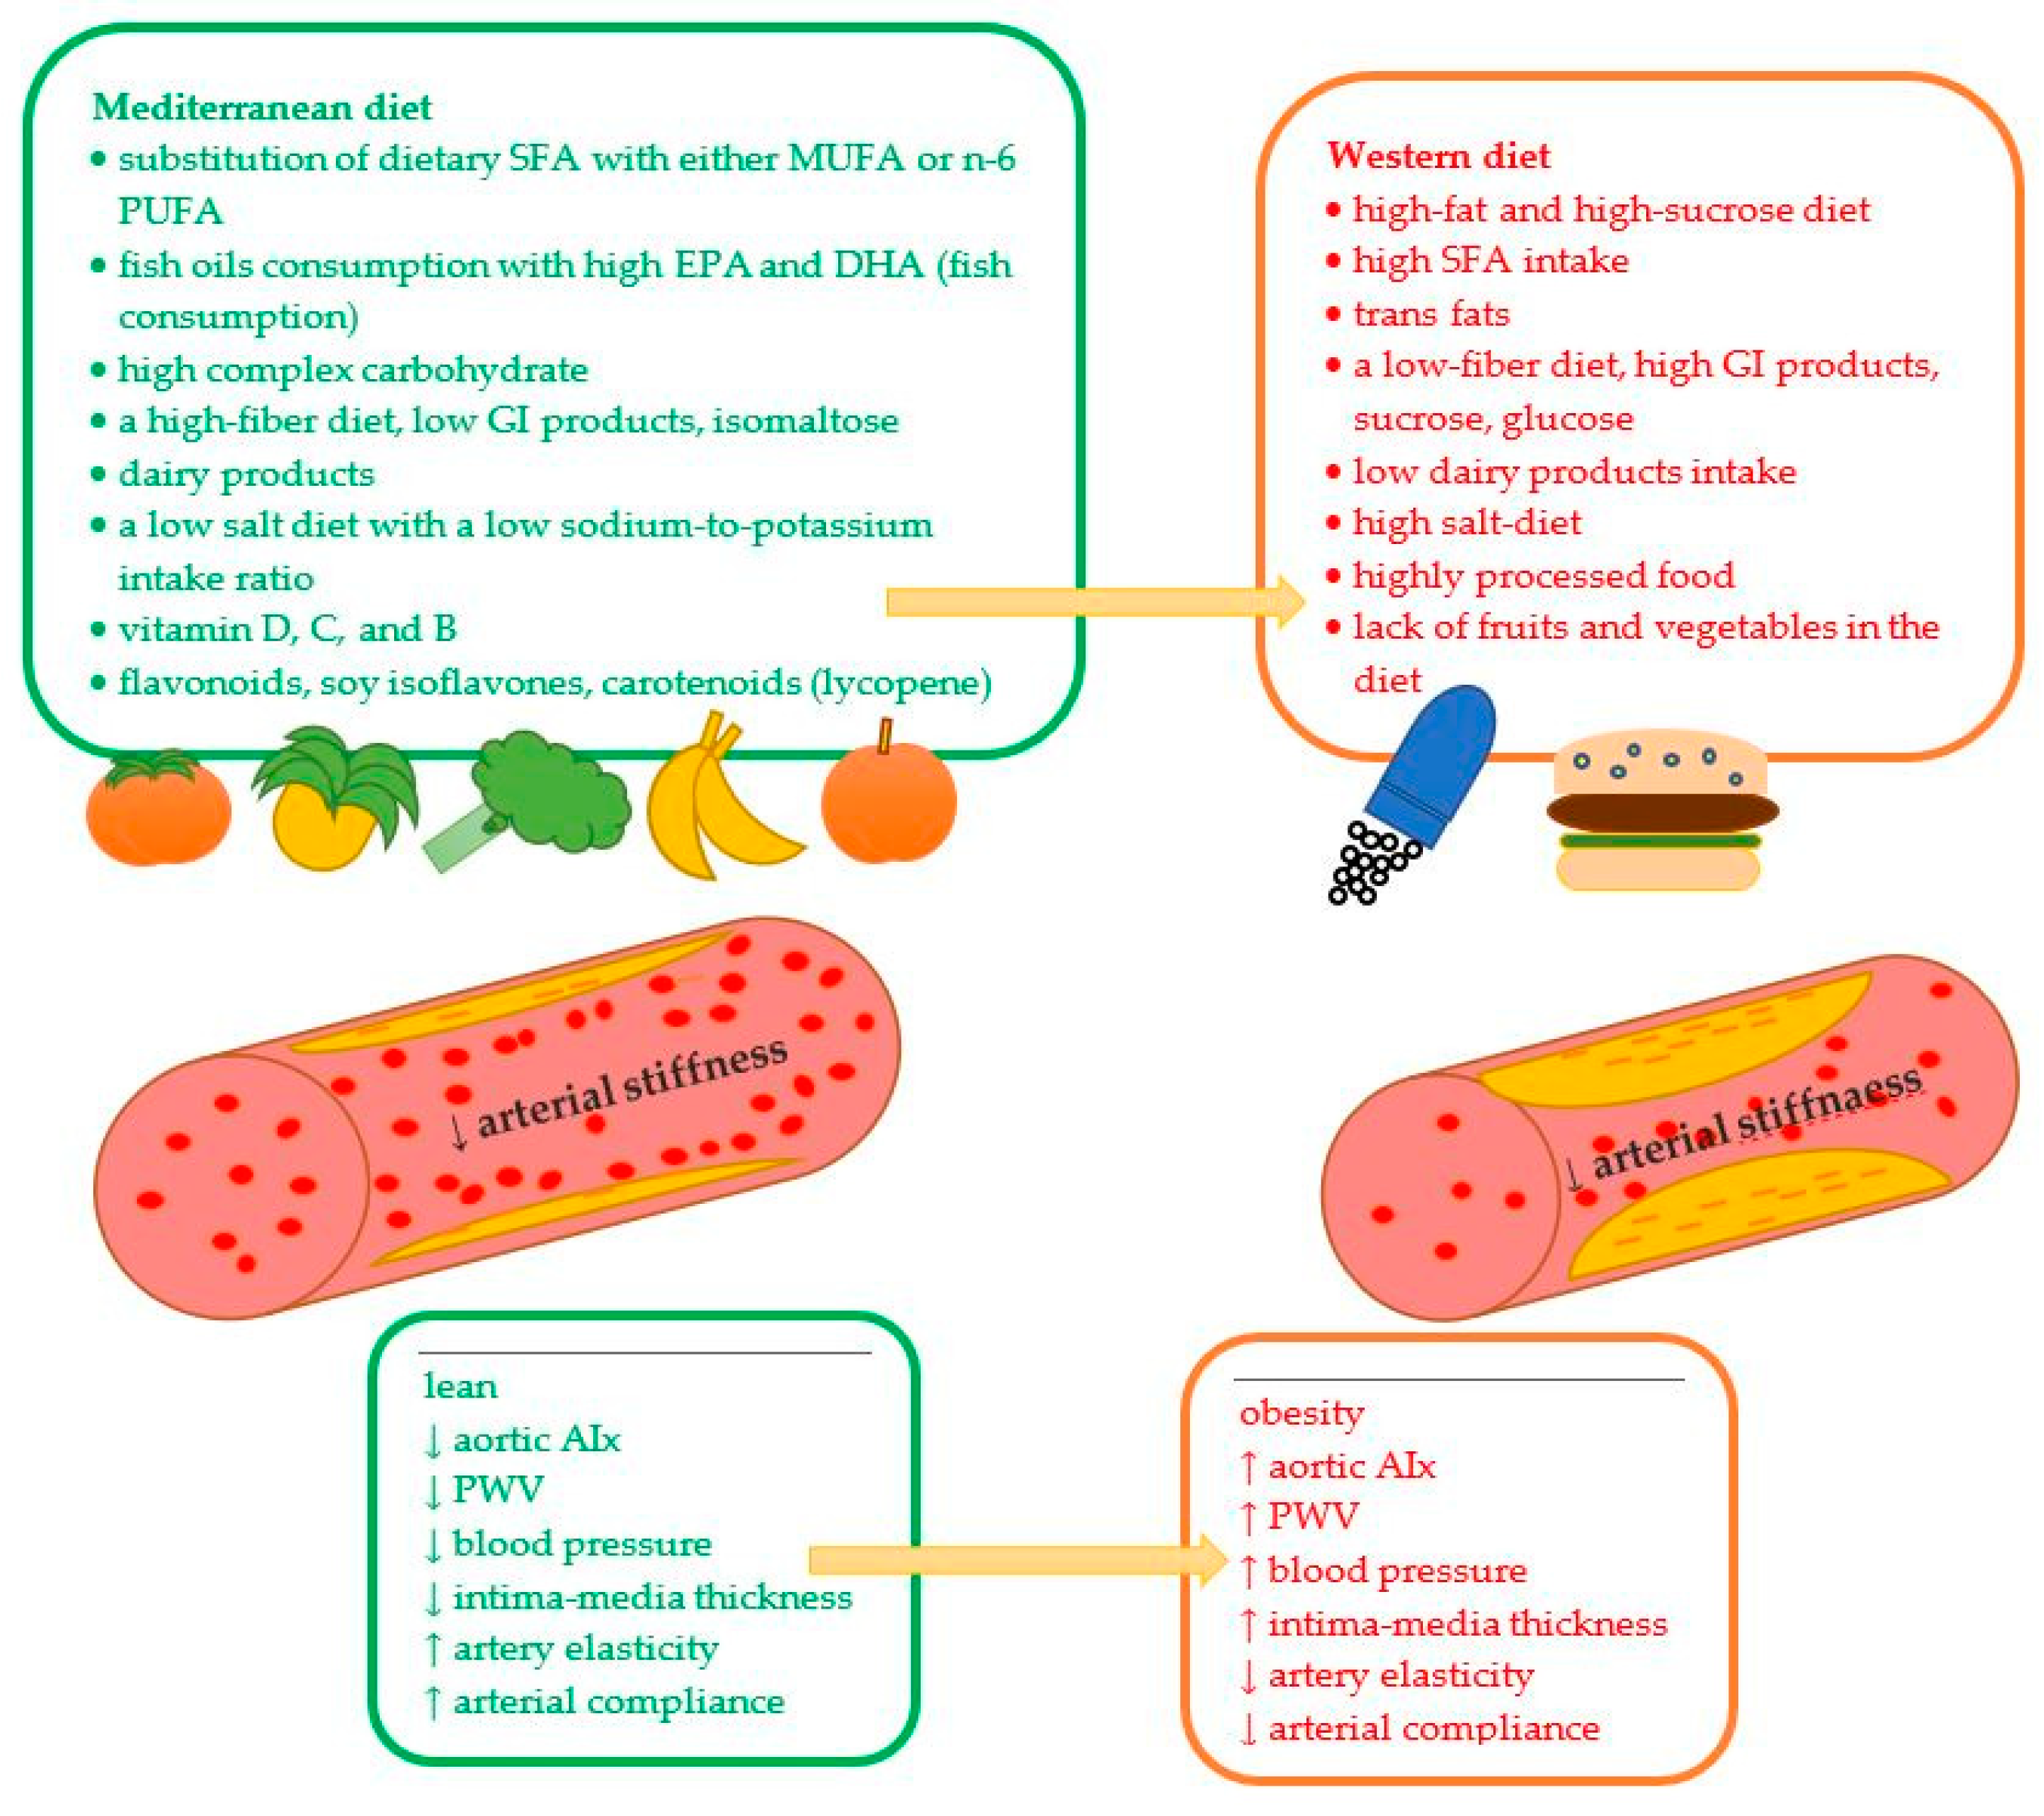 Mediterranean diet
• substitution of dietary SFA with either MUFA or n-6
PUFA
• fish oils consumption with high EPA and DHA (fish
consumption)
• high complex carbohydrate
• a high-fiber diet, low GI products, isomaltose
• dairy products
• a low salt diet with a low sodium-to-potassium
intake ratio
• vitamin D, C, and B
• flavonoids, soy isoflavones, carotenoids (lycopene)
Western diet
• high-fat and high-sucrose diet
• high SFA intake
• trans fats
• a low-fiber diet, high GI products,
sucrose, glucose
• low dairy products intake
• high salt-diet
• highly processed food
• lack of fruits and vegetables in the
diet
↓ arterial stiffness
↓ arterial stiffnaess
lean
↓ aortic AIx
↓ PWV
↓ blood pressure
↓ intima-media thickness
↑ artery elasticity
↑ arterial compliance
obesity
↑ aortic AIx
↑ PWV
↑ blood pressure
↑ intima-media thickness
↓ artery elasticity
↓ arterial compliance